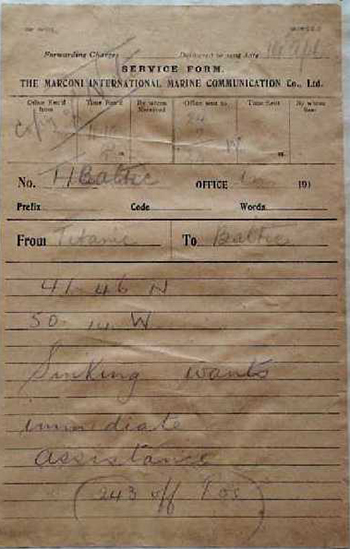 Forwarding Charge
Delivered or sent date
SERVICE FORM.
THE MARCONI INTERNATIONAL MARINE COMMUNICATION Co., Ltd.
Office Rec'd from Time Rec'd By whom Received Office sent to Time Sent By whom Sent
No. Baltic OFFICE 191
Prefix Code Words
From Titanic To Baltic
41. 46 N
50. 14 W
Sinking wants
immediate
assistance
243 off